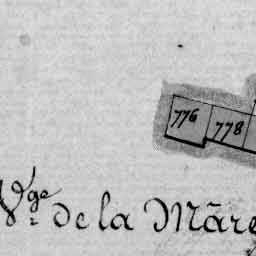 776
778
Vge de la Māre